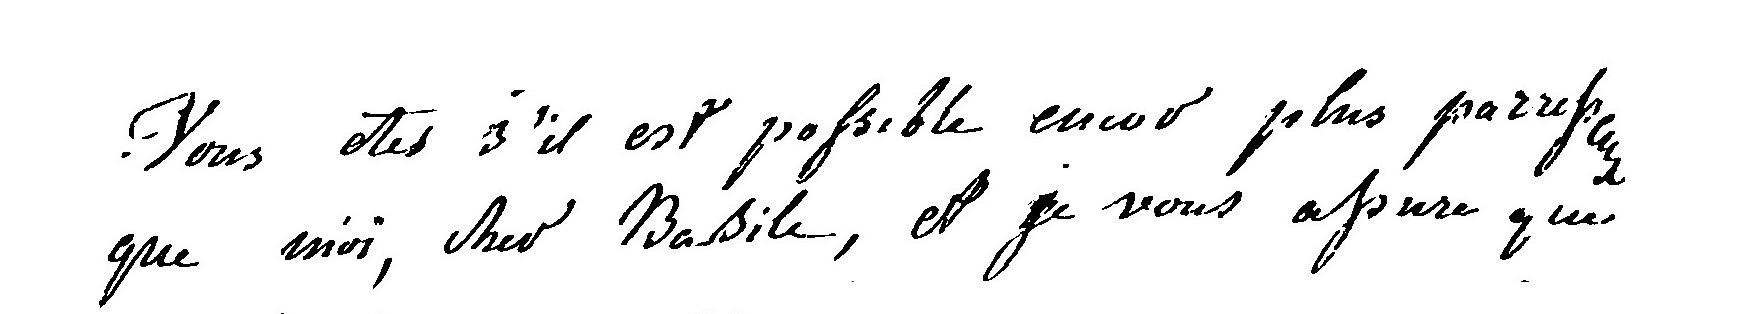 Vous etes s'il est possible encor plus parresseux
que moi, cher Basile, et je vous assure que